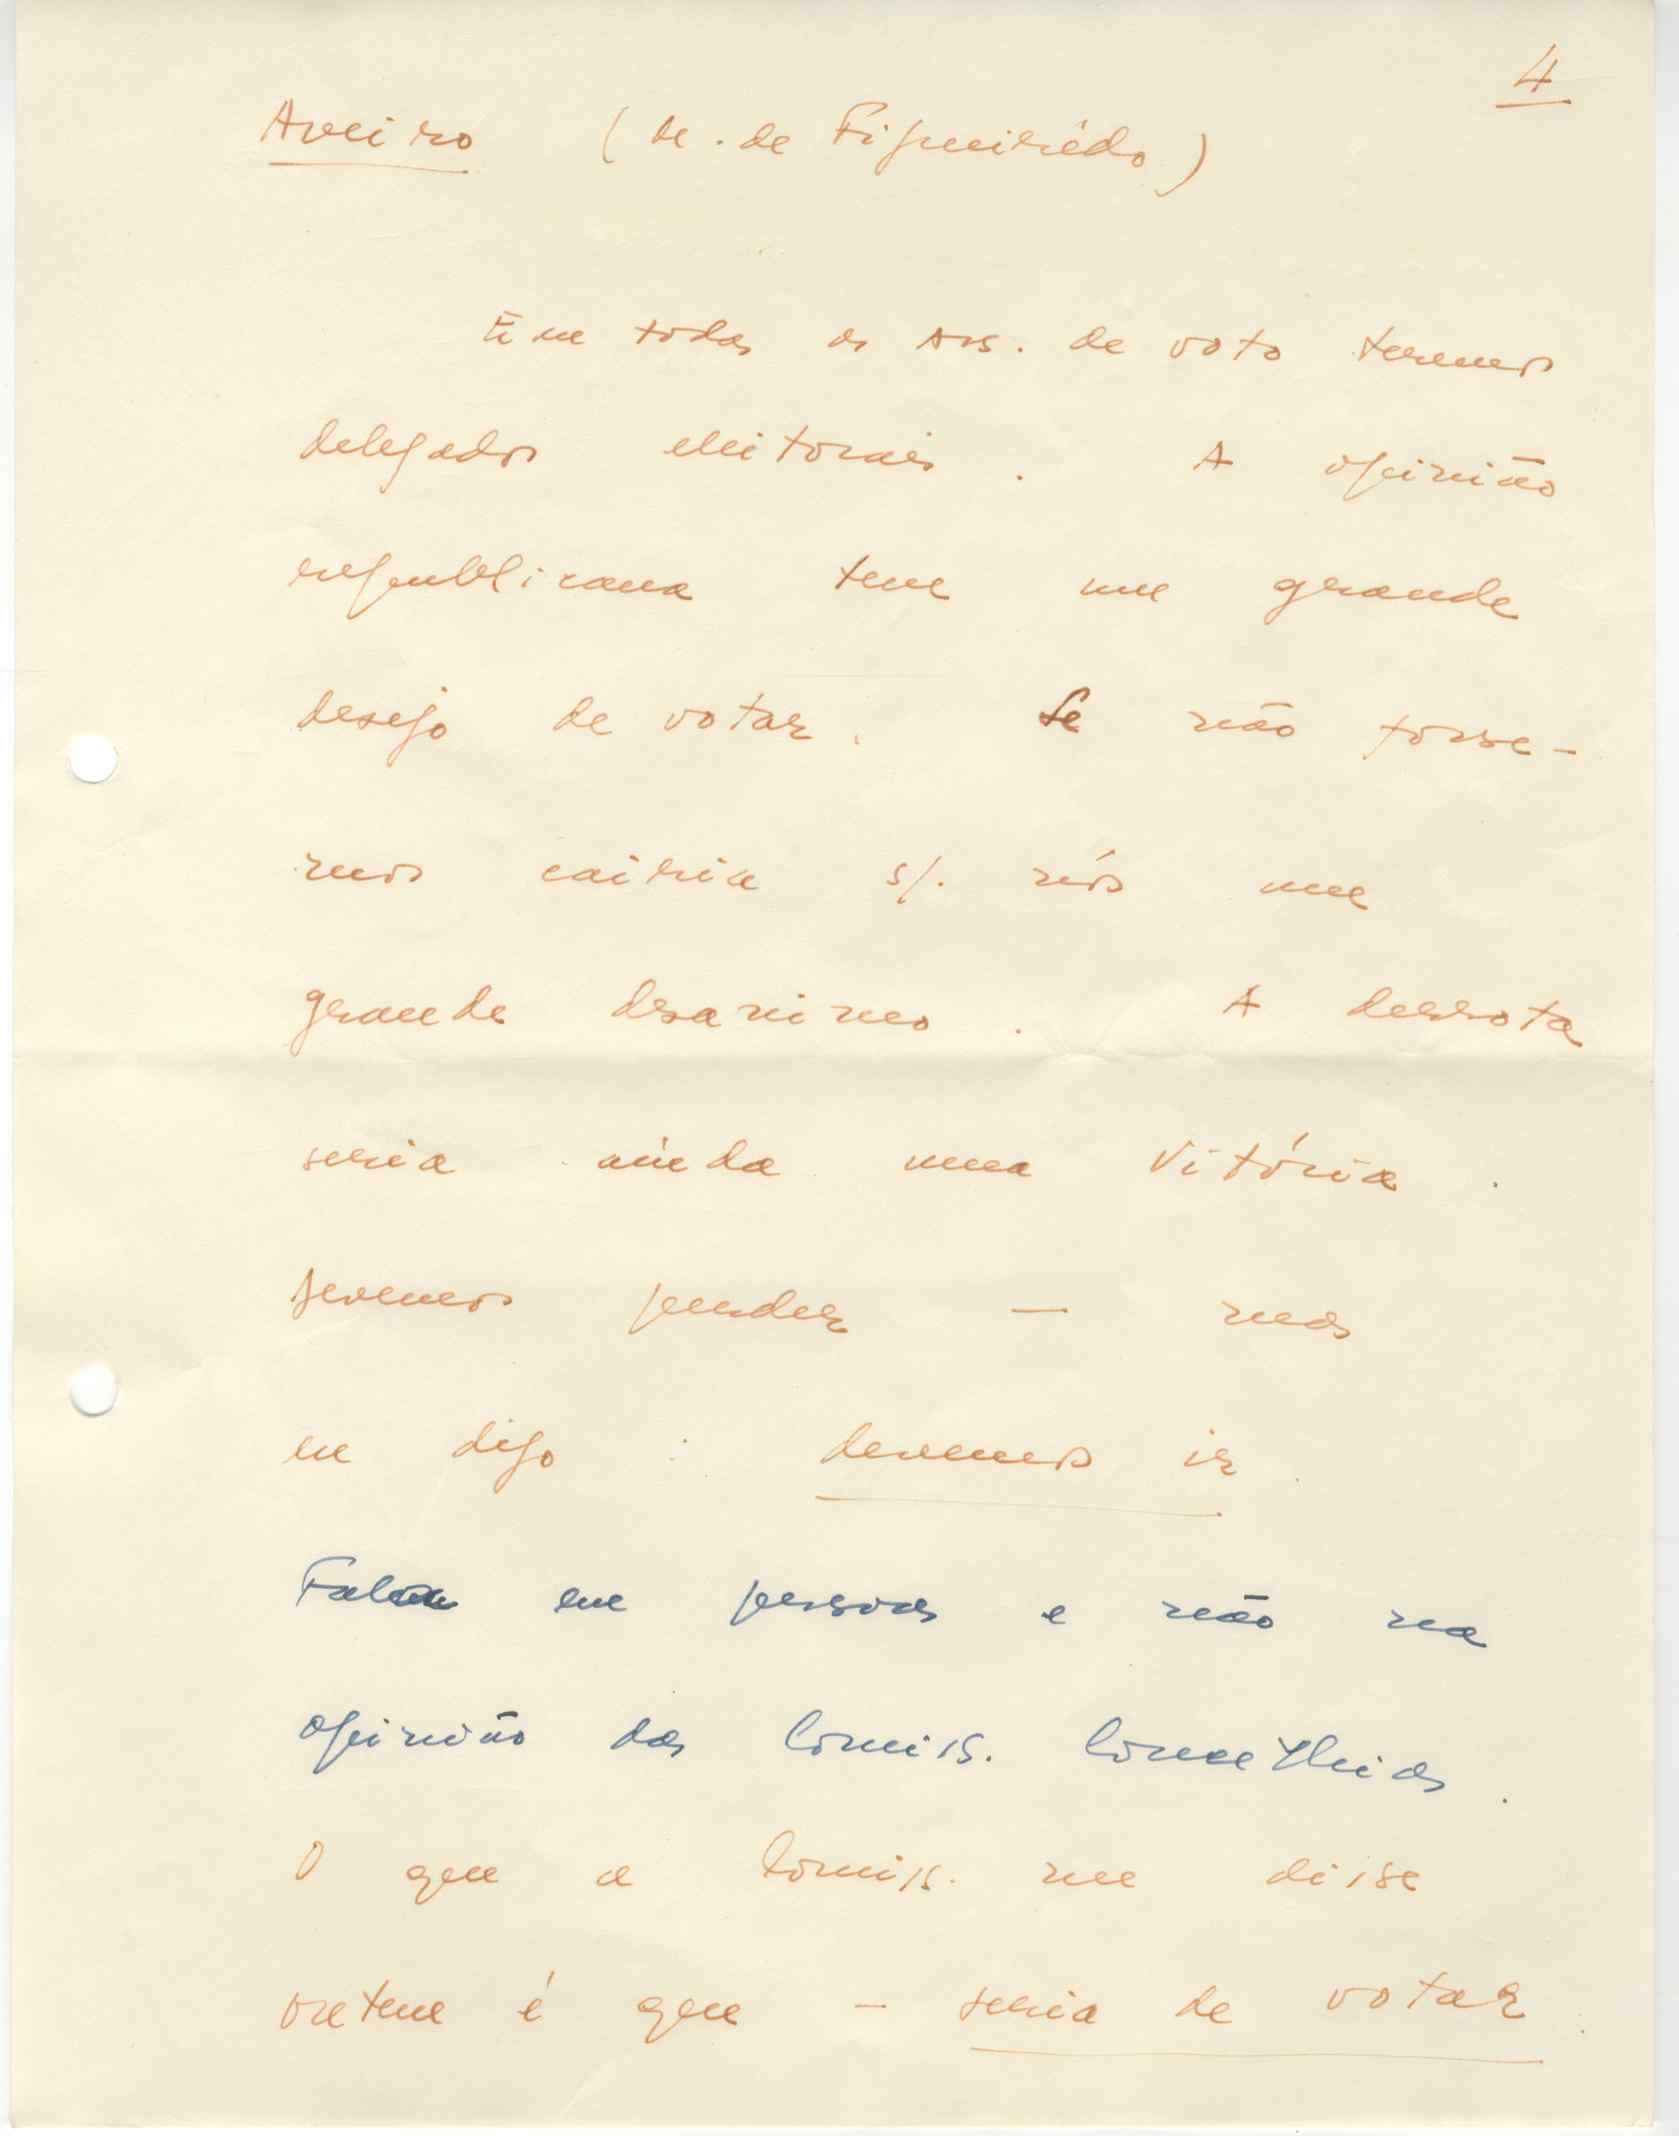 4
Aveiro (M. de Figueirêdo)
Em todas as Ass. de voto teremos
delegados eleitorais. A opinião
republicana tem um grande
desejo de votar. Se não fosse-
mos cairia s/. nós um
grande desanimo. A derrota
seria ainda uma vitória.
perder — mas
eu digo : devemos ir.
em pessoas e não na
opinião das Comiss. Concelhias.
O que a Comiss. me disse
ontem é que — seria de votar.